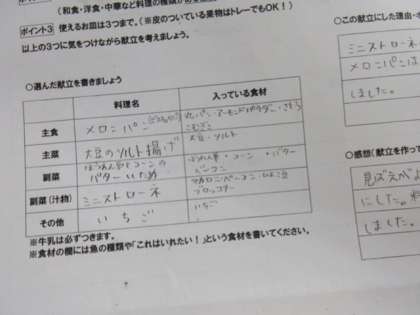 (和食・洋食・中華など料理の種類が
ポイント3 使えるお皿は3つまで。(※皮のついている果物はトレーでもOK!)
以上の3つに気をつけながら献立を考えましょう。
○選んだ献立を書きましょう
料理名 入っている食材
主食 メロンパン
こむぎこ
主菜 大豆のソルト揚げ 大豆・ソルト
副菜 ほうれん草とコーンの バターいため ほうれん草・コーン・バター
ベーコン
副菜(汁物) ミニストローネ マカロニ・ベーコン
ブロッコリー
その他 いちご いちご
※牛乳は必ずつきます。
※食材の欄には魚の種類や「これはいれたい!」という食材を書いてください。
○この献立にした理由・
ミニストローネ
メロンパンは
しました。
○感想(献立を作って
見ばえがよ
にした。
しました。